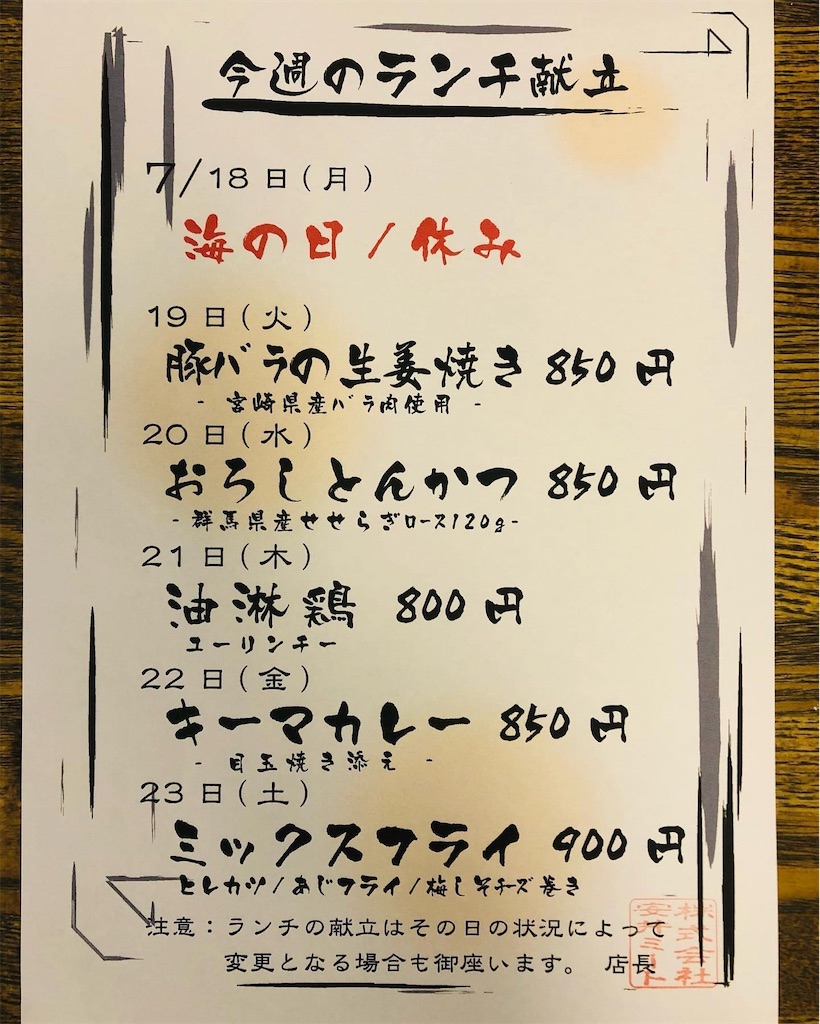 今週のランチ献立
7/18日(月)
海の日/休み
19日(火)
豚バラの生姜焼き 850円
- 宮崎県産バラ肉使用 -
20日(水)
おろしとんかつ 850円
-群馬県産せせらぎロース120g-
21日(木)
油淋鶏 800円
ユーリンチー
22日(金)
キーマカレー 850円
- 目玉焼き添え -
23日(土)
ミックスフライ 900円
ヒレカツ/あじフライ/梅しそチーズ巻き
注意：ランチの献立はその日の状況によって
変更となる場合も御座います。 店長
株式会社